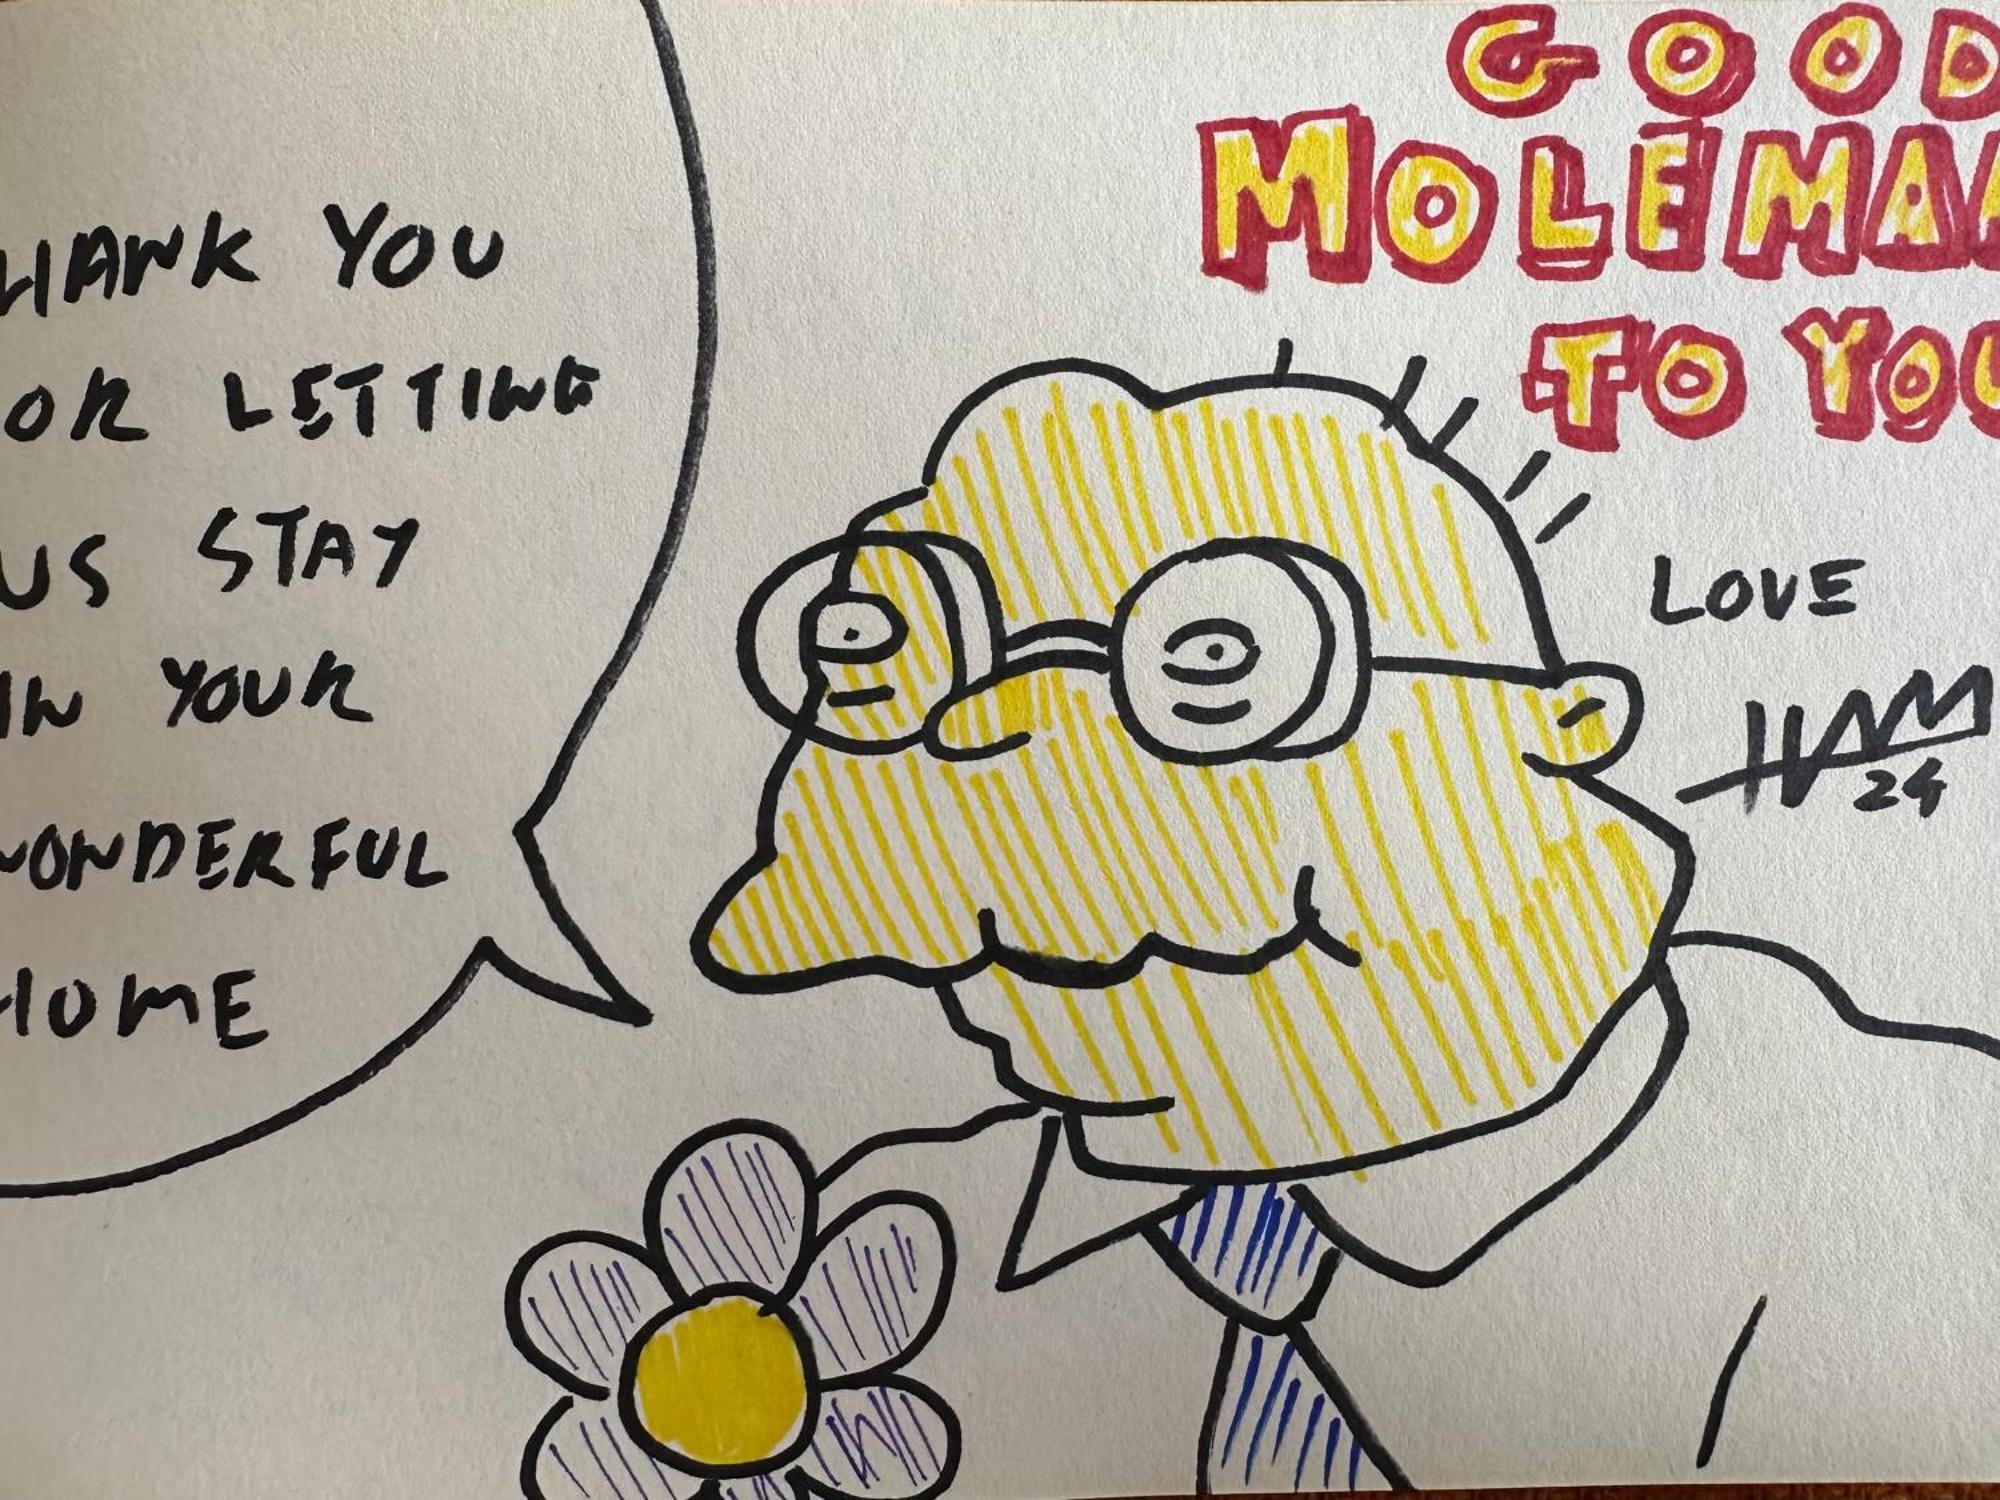 HANK YOU
OR LETTING
US STAY
IN YOUR
WONDERFUL
HOME
GOOD
MOLEMAN
TO YOU
LOVE
24